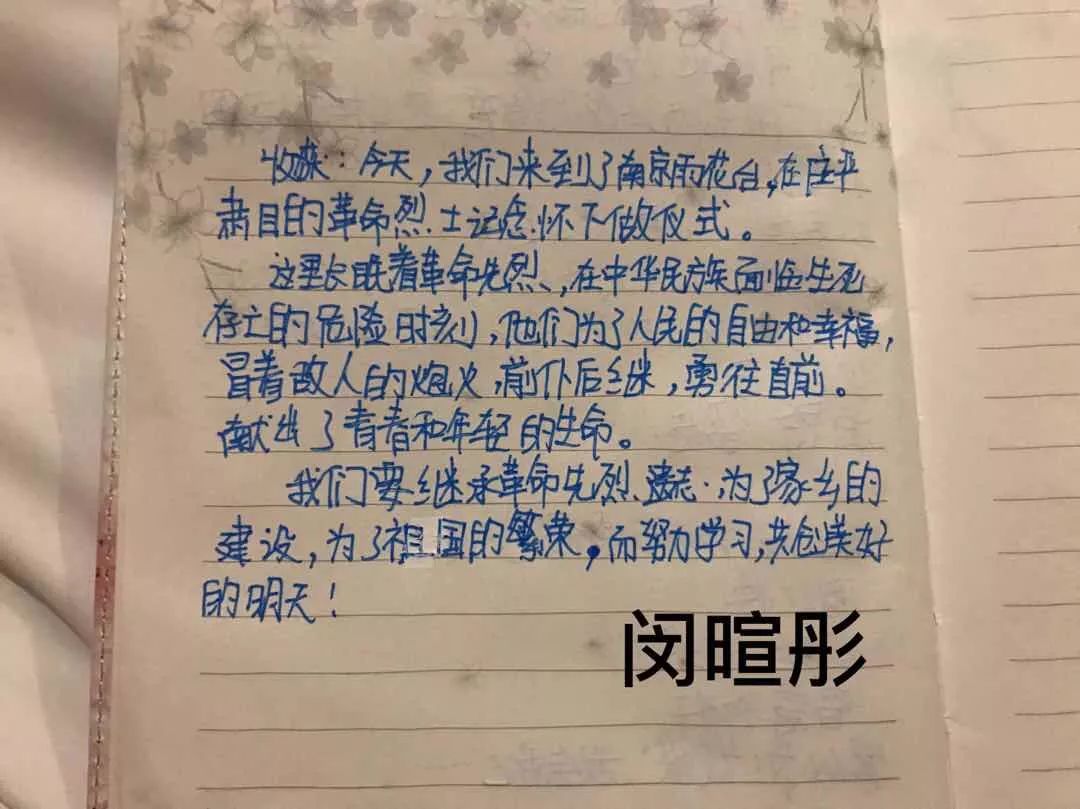 收获：今天，我们来到了南京雨花台，在庄平
肃目的革命烈士记念怀下做仪式。
这里长眠着革命先烈、在中华民族面临生死
存亡的危险时刻，他们为了人民的自由和幸福，
冒着敌人的炮火，前仆后继，勇往直前。
献出了青春和年轻的生命。
我们要继承革命先烈、遗志·为了家乡的
建设，为了祖国的繁荣，而努力学习，共创美好
的明天！
闵暄彤